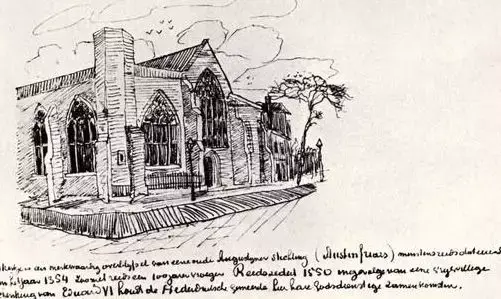 kerkje is een merkwaardig overblijfsel van eene oude Augustijner stichting (Austin friars) minstens reeds dateerend
het jaar 1354 zoo niet reeds een 100 jaren vroeger Reeds sedert 1550 ingevolge van eene vrijwillige
schenking van Edward VI houdt de Nederduitsche gemeente hier hare Godsdienstige zamenkomsten.